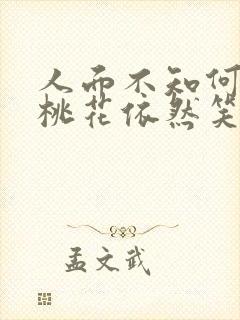 人而不知何
桃花依然笑
孟文武